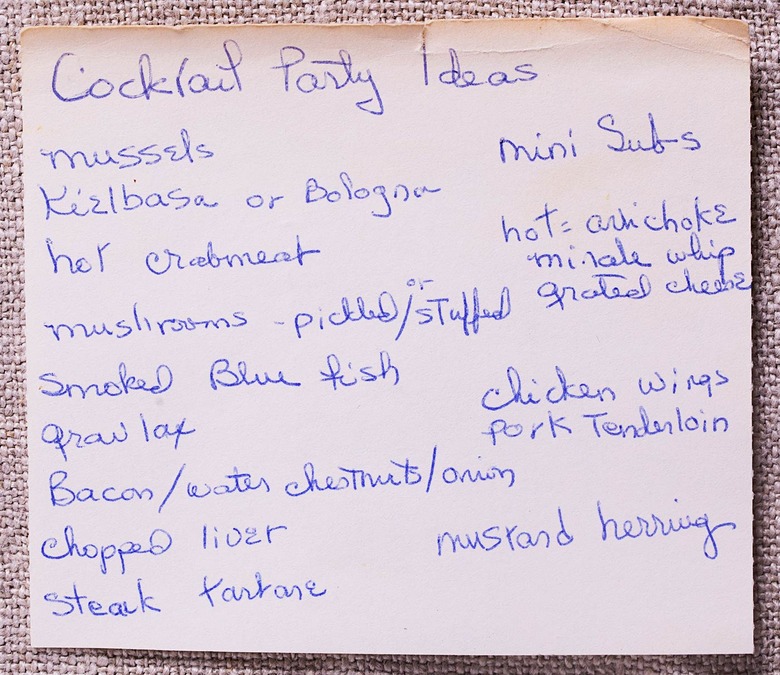 Cocktail Party Ideas
mussels
Kielbasa or Bologna
hot crabmeat
mushrooms - pickled/or stuffed
Smoked Blue fish
grav lax
Bacon/water chestnuts/onion
chopped liver
Steak tartare
mini Subs
hot = artichoke
mirale whip
grated cheese
chicken wings
pork Tenderloin
mustard herring